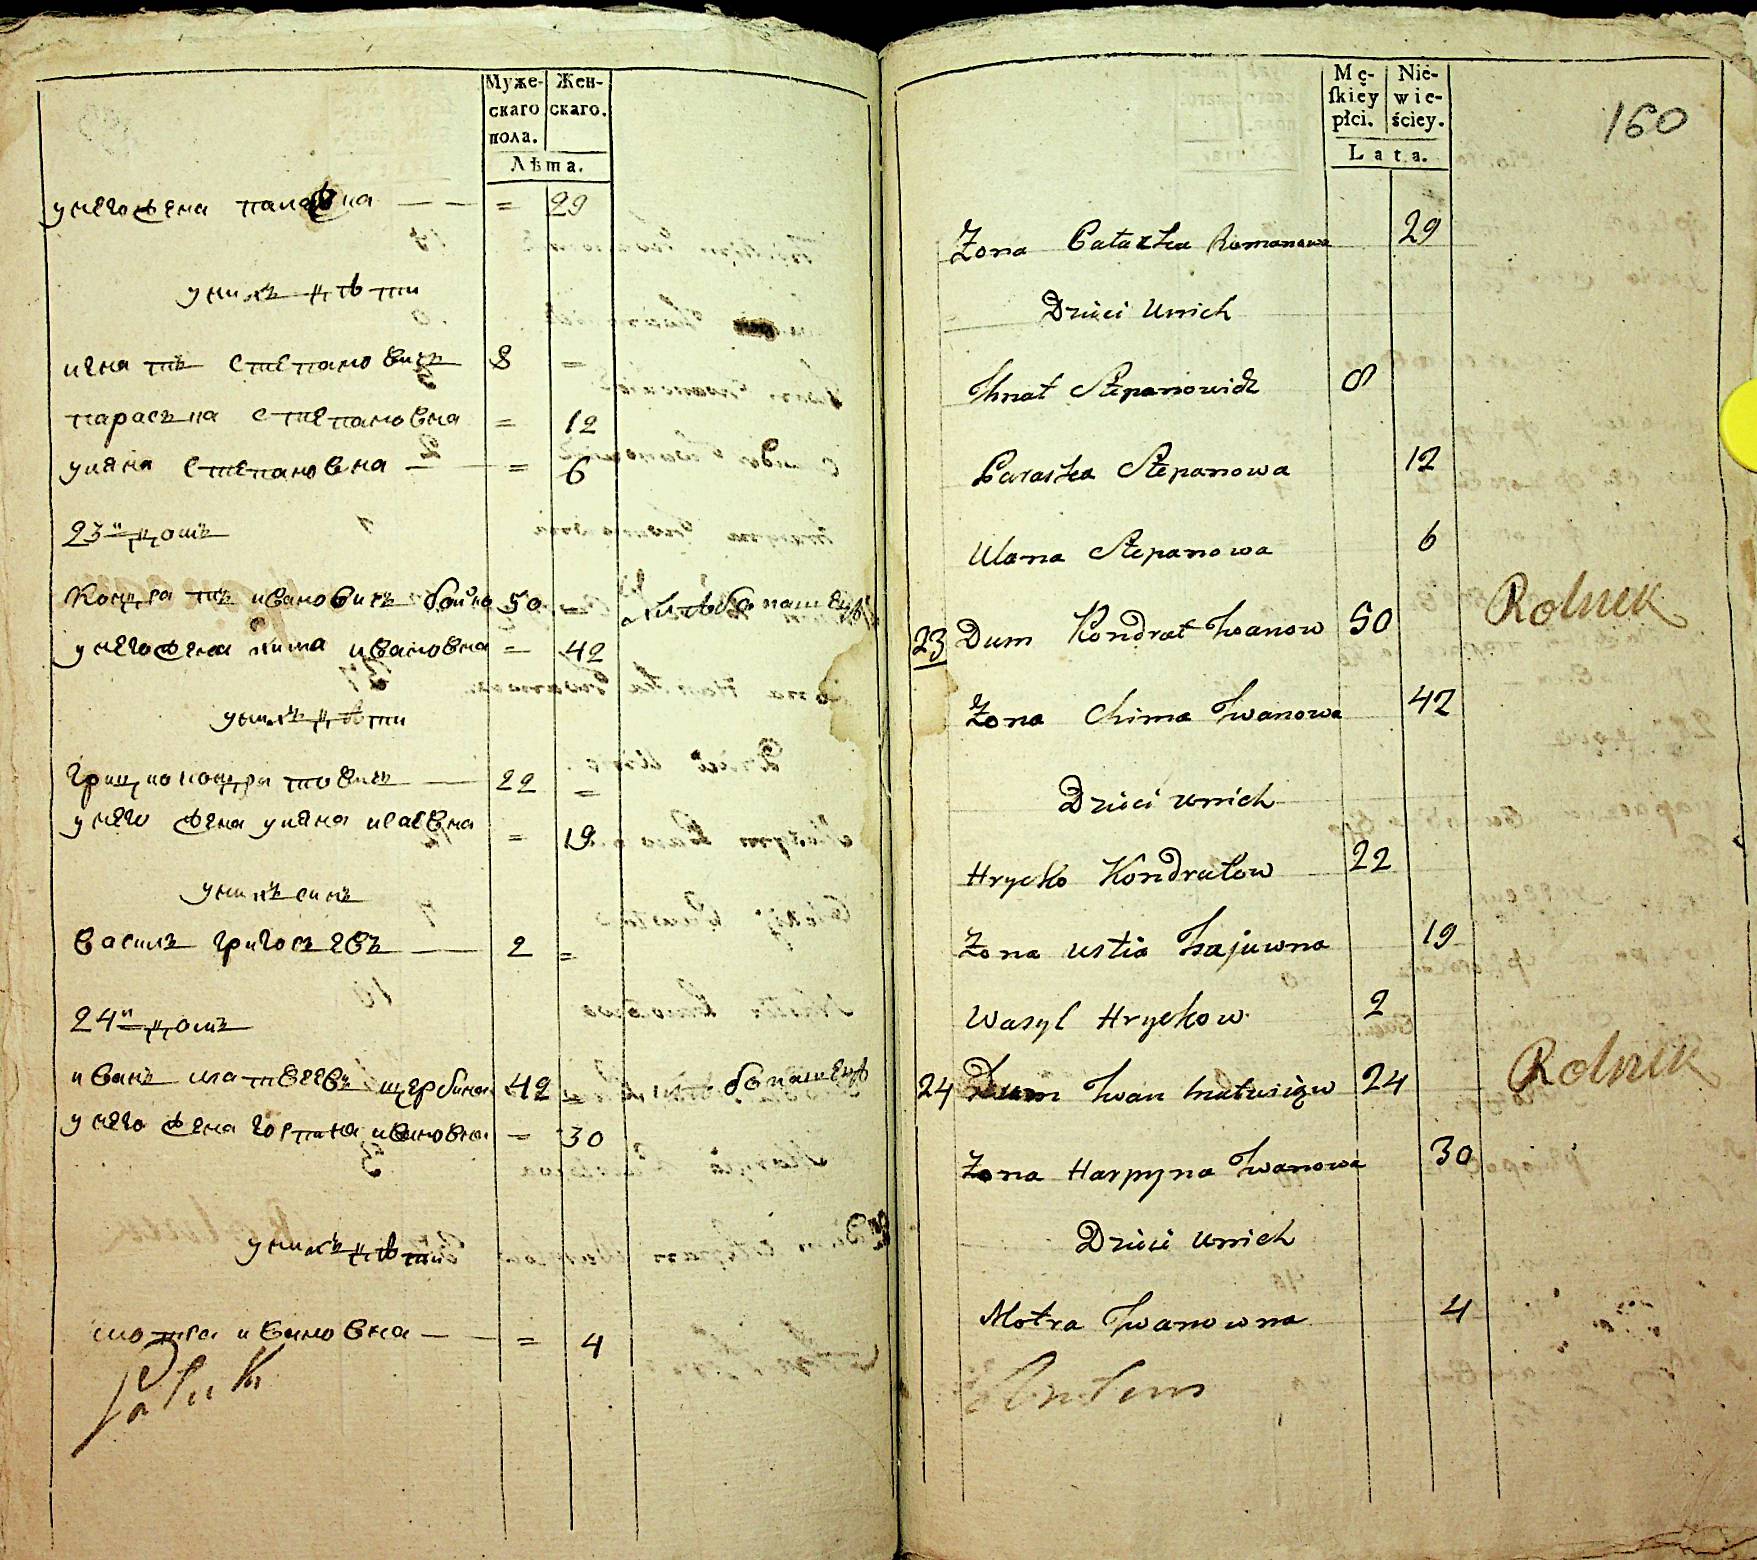 Муже-
скаго
пола.
Жен-
скаго.
Лѣта.
у него жена палажка — — = 29
у нихъ дѣти
игнатъ степановичъ 8 =
параска степановна = 12
уляна степановна — = 6
23й домъ
Кондратъ ивановичъ бойко 50 = хлѣбопашецъ
у него жена хима ивановна = 42
у нихъ дѣти
грицко кондратовичъ — 22 =
у него жена уляна исаевна = 19
у нихъ синъ
василь григорьевъ — 2 =
24й домъ
иванъ матвѣевъ щербина 42 = хлѣбопашецъ
у него жена горпина ивановна = 30
у нихъ дѣти
мотра ивановна — = 4
Mę-
skiey
płci.
Nie-
wie-
ściey.
Lata.
160
Żona Pałazka Romanowa 29
Dzieci Unich
Ihnat Stepanowicz 8
Paraska Stepanowa 12
Ulana Stepanowa 6
23 Dum Kondrat Iwanow 50 Rolnik
Żona Chima Iwanowa 42
Dzieci unich
Hrycko Kondratow 22
Żona Ustia Isajuwna 19
Wasyl Hryckow 2
24 Dum Iwan Matwiejow 24 Rolnik
Żona Harpyna Iwanowa 30
Dzieci Unich
Motra Iwanowna 4